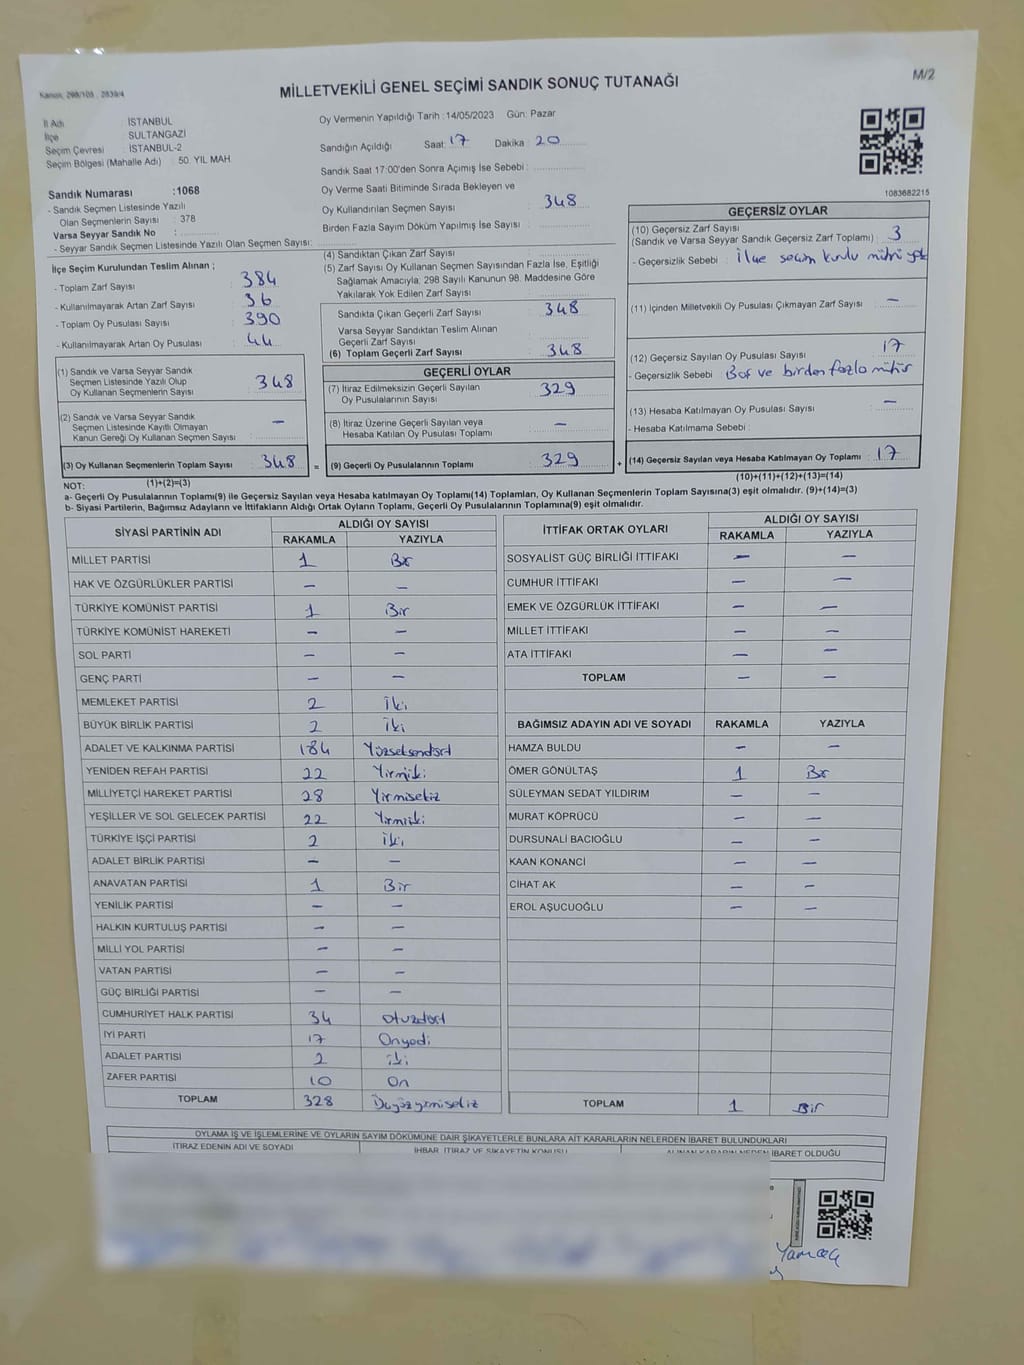 Kanun, 298/105 , 2839/4
MİLLETVEKİLİ GENEL SEÇİMİ SANDIK SONUÇ TUTANAĞI
M/2
İl Adı : İSTANBUL
İlçe : SULTANGAZİ
Seçim Çevresi : İSTANBUL-2
Seçim Bölgesi (Mahalle Adı) : 50. YIL MAH
Sandık Numarası :1068
- Sandık Seçmen Listesinde Yazılı
Olan Seçmenlerin Sayısı : 378
Varsa Seyyar Sandık No :
- Seyyar Sandık Seçmen Listesinde Yazılı Olan Seçmen Sayısı:
Oy Vermenin Yapıldığı Tarih :14/05/2023 Gün: Pazar
Sandığın Açıldığı Saat: 17 Dakika : 20
Sandık Saat 17:00'den Sonra Açımış İse Sebebi :
Oy Verme Saati Bitiminde Sırada Bekleyen ve
Oy Kullandırılan Seçmen Sayısı : 348
Birden Fazla Sayım Döküm Yapılmış İse Sayısı :
1083682215
İlçe Seçim Kurulundan Teslim Alınan ;
- Toplam Zarf Sayısı : 384
- Kullanılmayarak Artan Zarf Sayısı : 36
- Toplam Oy Pusulası Sayısı : 390
- Kullanılmayarak Artan Oy Pusulası : 44
(1) Sandık ve Varsa Seyyar Sandık
Seçmen Listesinde Yazılı Olup
Oy Kullanan Seçmenlerin Sayısı : 348
(2) Sandık ve Varsa Seyyar Sandık
Seçmen Listesinde Kayıtlı Olmayan
Kanun Gereği Oy Kullanan Seçmen Sayısı : —
(3) Oy Kullanan Seçmenlerin Toplam Sayısı : 348
(4) Sandıktan Çıkan Zarf Sayısı :
(5) Zarf Sayısı Oy Kullanan Seçmen Sayısından Fazla İse, Eşitliği
Sağlamak Amacıyla, 298 Sayılı Kanunun 98. Maddesine Göre
Yakılarak Yok Edilen Zarf Sayısı :
Sandıkta Çıkan Geçerli Zarf Sayısı : 348
Varsa Seyyar Sandıktan Teslim Alınan
Geçerli Zarf Sayısı :
(6) Toplam Geçerli Zarf Sayısı : 348
GEÇERLİ OYLAR
(7) İtiraz Edilmeksizin Geçerli Sayılan
Oy Pusulalarının Sayısı : 329
(8) İtiraz Üzerine Geçerli Sayılan veya
Hesaba Katılan Oy Pusulası Toplamı : —
= (9) Geçerli Oy Pusulalarının Toplamı : 329
GEÇERSİZ OYLAR
(10) Geçersiz Zarf Sayısı
(Sandık ve Varsa Seyyar Sandık Geçersiz Zarf Toplamı) : 3
- Geçersizlik Sebebi : İlçe seçim kurulu mührü yok
(11) İçinden Milletvekili Oy Pusulası Çıkmayan Zarf Sayısı : —
(12) Geçersiz Sayılan Oy Pusulası Sayısı : 17
- Geçersizlik Sebebi : Boş ve birden fazla mühür
(13) Hesaba Katılmayan Oy Pusulası Sayısı : —
- Hesaba Katılmama Sebebi :
+ (14) Geçersiz Sayılan veya Hesaba Katılmayan Oy Toplamı : 17
NOT: (1)+(2)=(3)
(10)+(11)+(12)+(13)=(14)
a- Geçerli Oy Pusulalarının Toplamı(9) ile Geçersiz Sayılan veya Hesaba katılmayan Oy Toplamı(14) Toplamları, Oy Kullanan Seçmenlerin Toplam Sayısına(3) eşit olmalıdır. (9)+(14)=(3)
b- Siyasi Partilerin, Bağımsız Adayların ve İttifakların Aldığı Ortak Oyların Toplamı, Geçerli Oy Pusulalarının Toplamına(9) eşit olmalıdır.
SİYASİ PARTİNİN ADI ALDIĞI OY SAYISI
RAKAMLA YAZIYLA
MİLLET PARTİSİ 1 Bir
HAK VE ÖZGÜRLÜKLER PARTİSİ — —
TÜRKİYE KOMÜNİST PARTİSİ 1 Bir
TÜRKİYE KOMÜNİST HAREKETİ — —
SOL PARTİ — —
GENÇ PARTİ — —
MEMLEKET PARTİSİ 2 İki
BÜYÜK BİRLİK PARTİSİ 2 İki
ADALET VE KALKINMA PARTİSİ 184 Yüzseksendört
YENİDEN REFAH PARTİSİ 22 Yirmiiki
MİLLİYETÇİ HAREKET PARTİSİ 28 Yirmisekiz
YEŞİLLER VE SOL GELECEK PARTİSİ 22 Yirmiiki
TÜRKİYE İŞÇİ PARTİSİ 2 İki
ADALET BİRLİK PARTİSİ — —
ANAVATAN PARTİSİ 1 Bir
YENİLİK PARTİSİ — —
HALKIN KURTULUŞ PARTİSİ — —
MİLLİ YOL PARTİSİ — —
VATAN PARTİSİ — —
GÜÇ BİRLİĞİ PARTİSİ — —
CUMHURİYET HALK PARTİSİ 34 Otuzdört
İYİ PARTİ 17 Onyedi
ADALET PARTİSİ 2 iki
ZAFER PARTİSİ 10 On
TOPLAM 328 Üçyüzyirmisekiz
İTTİFAK ORTAK OYLARI ALDIĞI OY SAYISI
RAKAMLA YAZIYLA
SOSYALİST GÜÇ BİRLİĞİ İTTİFAKI — —
CUMHUR İTTİFAKI — —
EMEK VE ÖZGÜRLÜK İTTİFAKI — —
MİLLET İTTİFAKI — —
ATA İTTİFAKI — —
TOPLAM — —
BAĞIMSIZ ADAYIN ADI VE SOYADI RAKAMLA YAZIYLA
HAMZA BULDU — —
ÖMER GÖNÜLTAŞ 1 Bir
SÜLEYMAN SEDAT YILDIRIM — —
MURAT KÖPRÜCÜ — —
DURSUNALİ BACIOĞLU — —
KAAN KONANCİ — —
CİHAT AK — —
EROL AŞUCUOĞLU — —
TOPLAM 1 Bir
OYLAMA İŞ VE İŞLEMLERİNE VE OYLARIN SAYIM DÖKÜMÜNE DAİR ŞİKAYETLERLE BUNLARA AİT KARARLARIN NELERDEN İBARET BULUNDUKLARI
İTİRAZ EDENİN ADI VE SOYADI İHBAR, İTİRAZ VE ŞİKAYETİN KONUSU ALINAN KARARIN NEDEN İBARET OLDUĞU